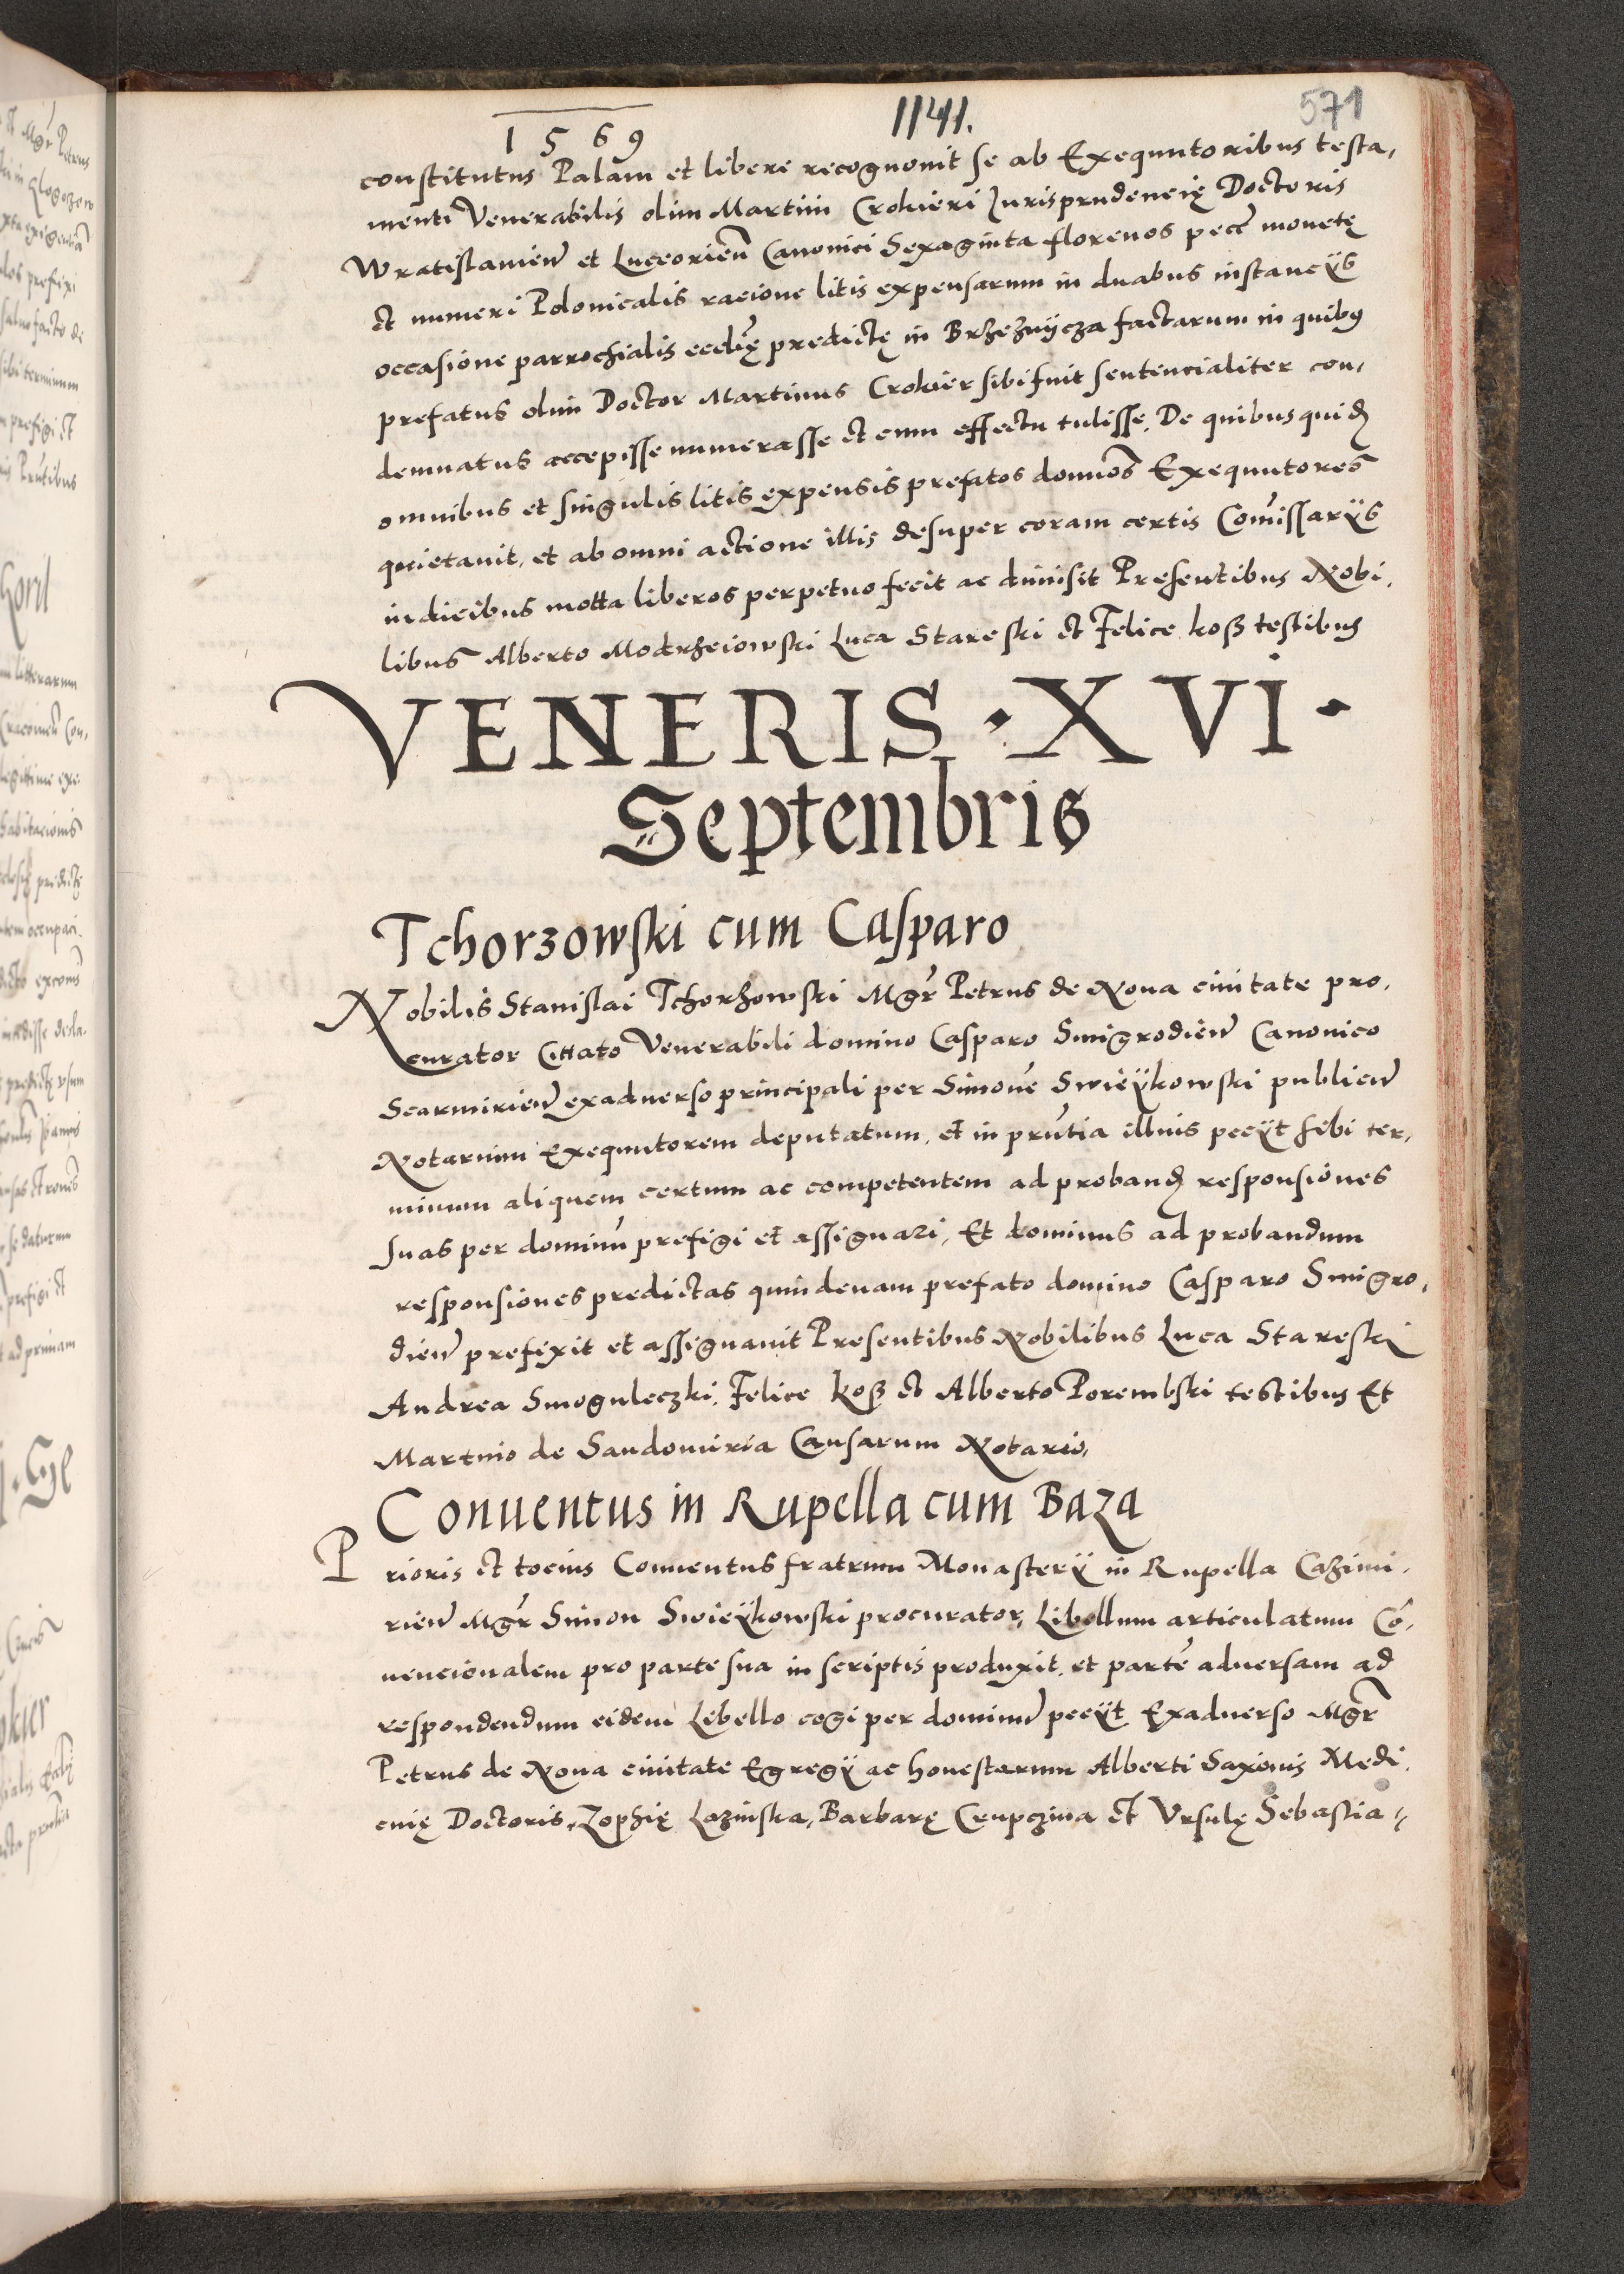 1569
1141.
571
constitutus Palam et libere recognouit se ab Exequutoribus testa,
menti Venerabilis olim Martini Crokieri Jurisprudencię Doctoris
Wratislauien̄ et Lucceorien̄ Canonici Sexaginta florenos pecc̄ monetę
et numeri Polonicalis racione litis expensarum in duabus instancÿs
occasione parrochialis eccl̄ię predictę in Brzeźnÿcza factarum in quibꝯ
prefatus olim Doctor Martinus Crokier sibi fuit sentencialiter con,
demnatus accepisse numerasse et cum effectu tulisse. De quibus quid̄
omnibus et singulis litis expensis prefatos dominos Exequutores
quietauit, et ab omni actione illis desuper coram certis Com̄issarÿs
iudicibus motta liberos perpetuo fecit ac dimisit Presentibus Nobi,
libus Alberto Modrzeiowski Luca Stareski et Felice koß testibus
VENERIS · XVI ·
Septembris
Tchorzowski cum Casparo
Nobilis Stanislai Tchorzowski Mgr̄ Petrus de Noua ciuitate pro,
curator Cittato Venerabili domino Casparo Smigrodien̄ Canonico
Scarmirien̄ exaduerso principali per Simonē Swieÿkowski publicum̄
Notarium Exequutorem deputatum, et in prn̄tia illius peeÿt sibi ter,
minum aliquem certum ac competentem ad proband̄ responsiones
suas per dominū prefigi et assignari, Et dominus ad probandum
responsiones predictas quindenam prefato domino Casparo Smigro,
dien̄ prefixit et assignauit Presentibus Nobilibus Luca Stareski
Andrea Smoguleczki, Felice koß et Alberto Porembski testibus Et
Martino de Sandomiria Causarum Notario,
Conuentus in Rupella cum Baza
Prioris et tocius Conuentus fratrum Monasterÿ in Rupella Cazimi,
rien̄ Mgr̄ Simon Swieÿkowski procurator, Libellum articulatum Cō,
uencionalem pro parte sua in scriptis produxit, et partē aduersam ad
respondendum eidem Libello cogi per dominum̄ peeÿt Exaduerso Mgr̄
Petrus de Noua ciuitate Egregÿ ac honestarum Alberti Saxonis Medi,
cinę Doctoris, Zophię Lazinska, Barbarę Crupczina et Vrsulę Sebastia,